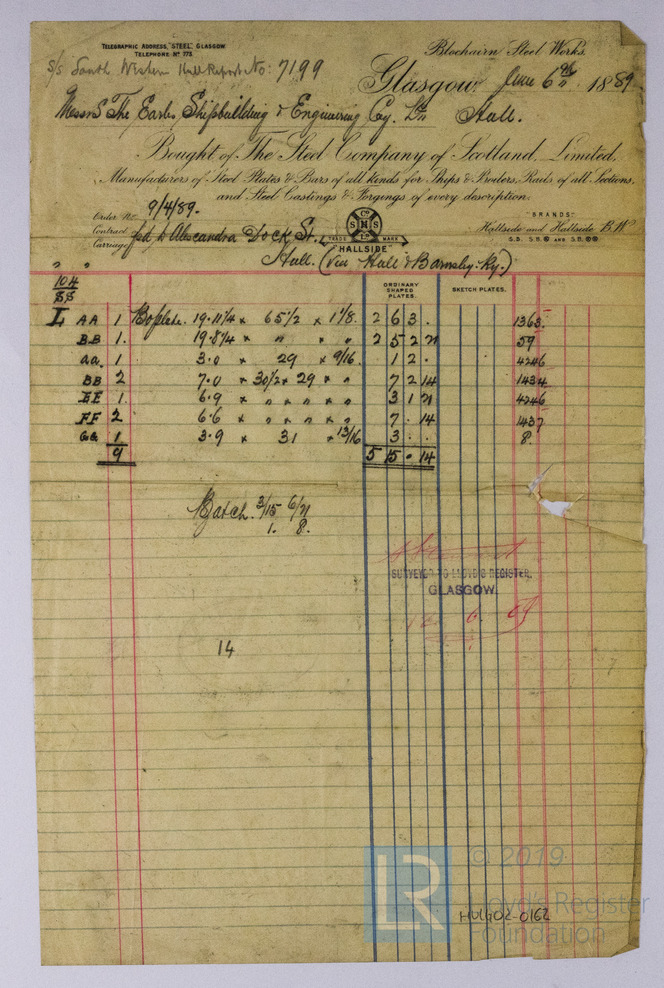 TELEGRAPHIC ADDRESS, "STEEL", GLASGOW
TELEPHONE No 773.
Blochairn Steel Works.
S/S South Western Hull Report No: 7199
Glasgow, June 6th 1889
Messrs The Earles Shipbuilding & Engineering Coy. Ltd Hull.
Bought of The Steel Company of Scotland, Limited,
Manufacturers of Steel Plates & Bars of all kinds for Ships & Boilers, Rails of all Sections,
and Steel Castings & Forgings of every description.
Order No 9/4/89.
Contract
Carriage fwd to Alexandra Dock St.
Hull. (via Hull & Barnsley Ry.)
Co
S H S
Ld
TRADE MARK
"HALLSIDE"
"BRANDS"
Hallside and Hallside B.W
S.B. S.B. AND S.B.
" "
104
85
ORDINARY SHAPED PLATES.
SKETCH PLATES.
L AA 1 Bo plate. 19.11 1/4 x 65 1/2 x 1 1/8. 2 6 3 . 1368.
BB 1. 19.8 1/4 x " x " 2 5 2 21 59
aa. 1 3.0 x 29 x 9/16. 1 2 . 4246
BB 2 7.0 x 30 1/2 x 29 x " 7 2 14 1434
EE 1. 6.9 x " x " x " 3 1 21 4246
FF 2 6.6 x " x " x " 7 . 14 1437
GG 1 3.9 x 31 x 13/16 3 . . 8.
9 5 15 . 14
Batch. 3/15 6/21
1. 8.
SURVEYOR TO LLOYD'S REGISTER,
GLASGOW.
6. 89
14
LR
© 2019
Lloyd's Register
Foundation
HUL902-0162